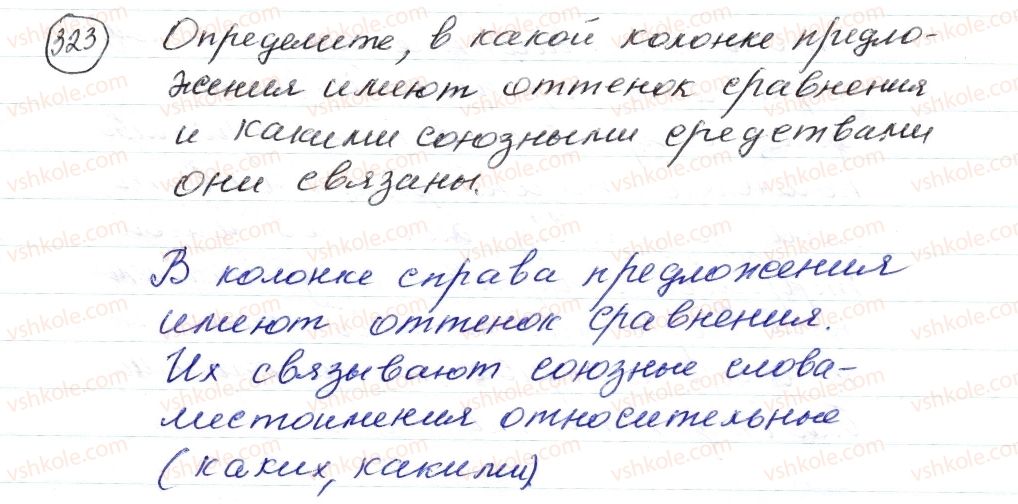 323 Определите, в какой колонке предло-
жения имеют оттенок сравнения
и какими союзными средствами
они связаны.
В колонке справа предложения
имеют оттенок сравнения.
Их связывают союзные слова-
местоимения относительные
(каких, какими)